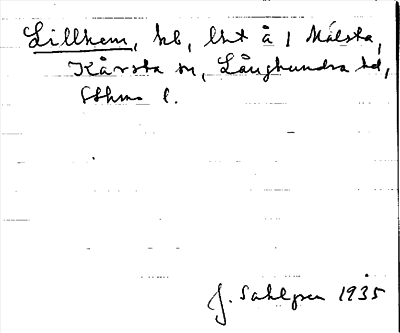 Lillhem, hb, lht å 1 Målsta,
Kårsta sn, Långhundra hd,
Sthms l.
J. Sahlgren 1935